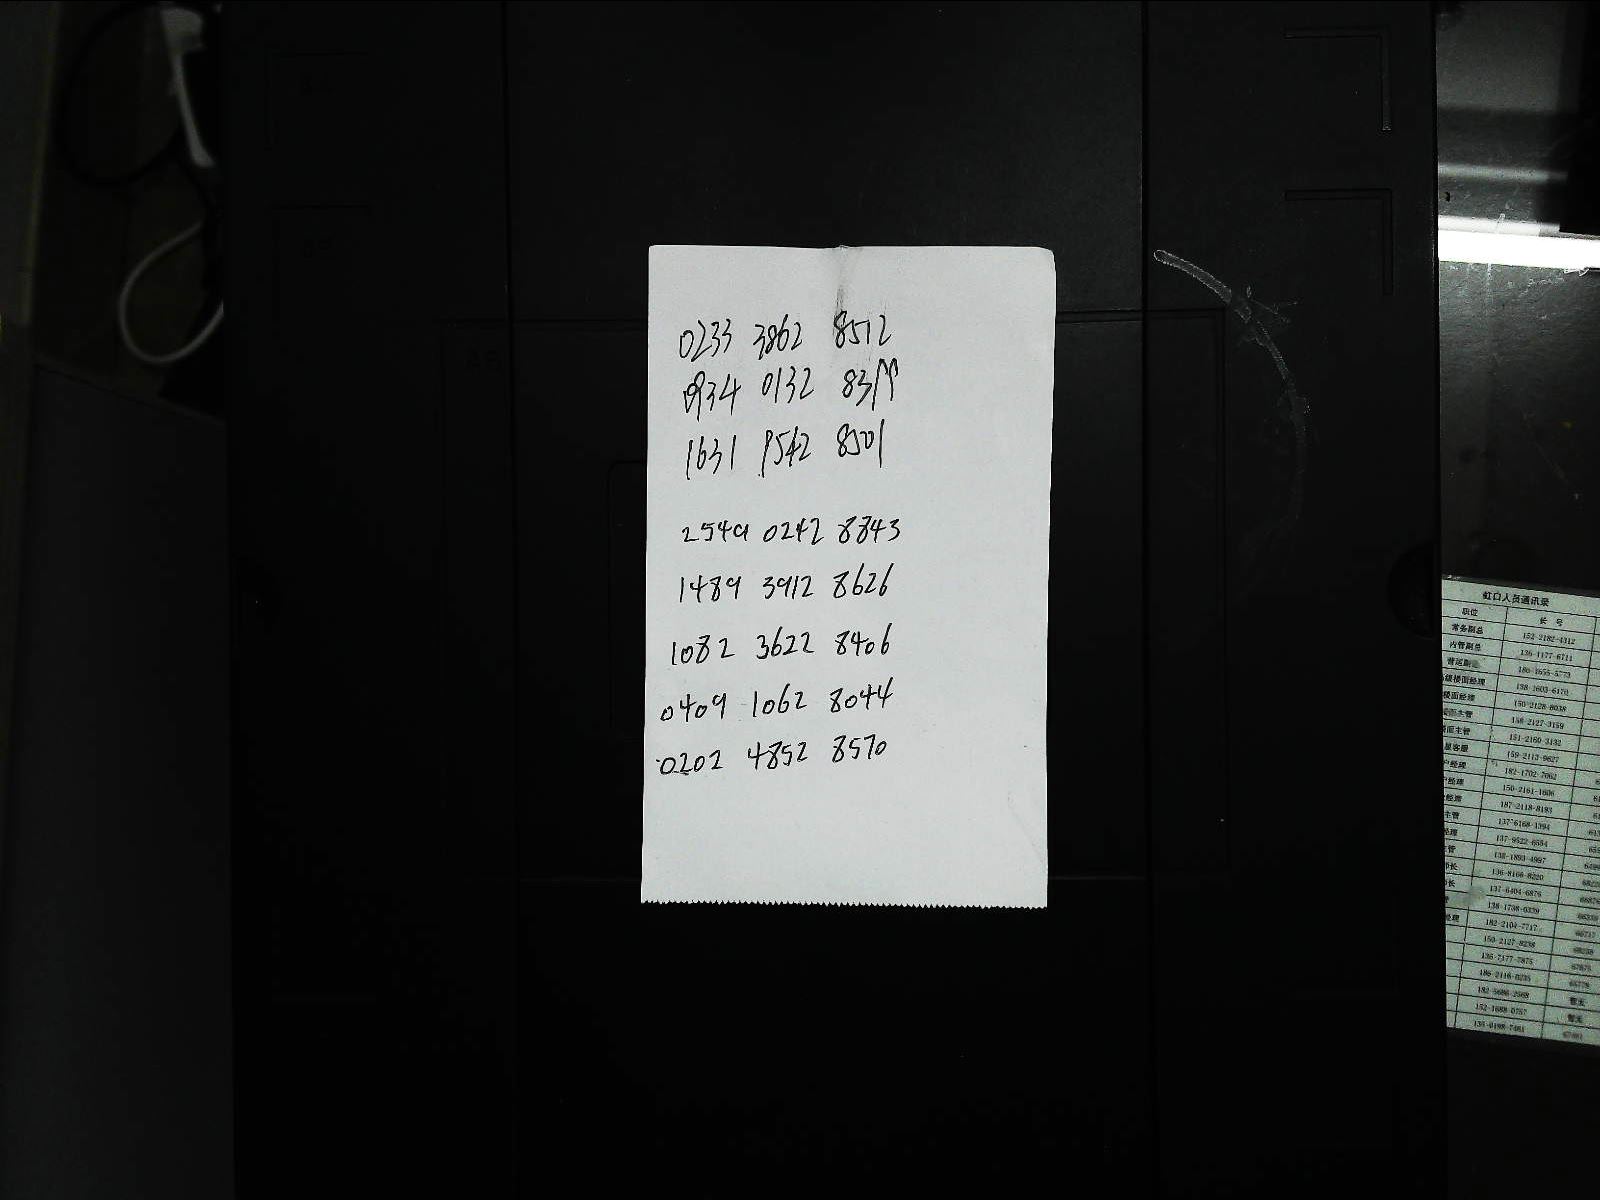 0233 3862 8512
0934 0132
1631 9542 8501
2549 0242 8843
1489 3912 8626
1082 3622 8406
0409 1062 8044
0202 4852 8570
虹口人员通讯录
职位 长 号
常务副总 152-2182-4312
内管副总 136-1177-6711
营运副 180-1655-5773
级楼面经理 138-1603-6170
楼面经理 150-2128-8038
主管 158-2127-3159
面主管 151-2160-3132
星客服 159-2113-9627
户经理 182-1702-7062
经理 150-2161-1606
经理 187-2118-8193
主管 137-6168-1394
经理 137-9522-6554
主管 138-1893-4997
长 136-8166-8220
长 137-6404-6876
138-1738-0339
经理 182-2104-7717
150-2127-8238
136-7177-7875
186-2116-8235
182-5686-2568 暂无
152-1688-0757 暂无